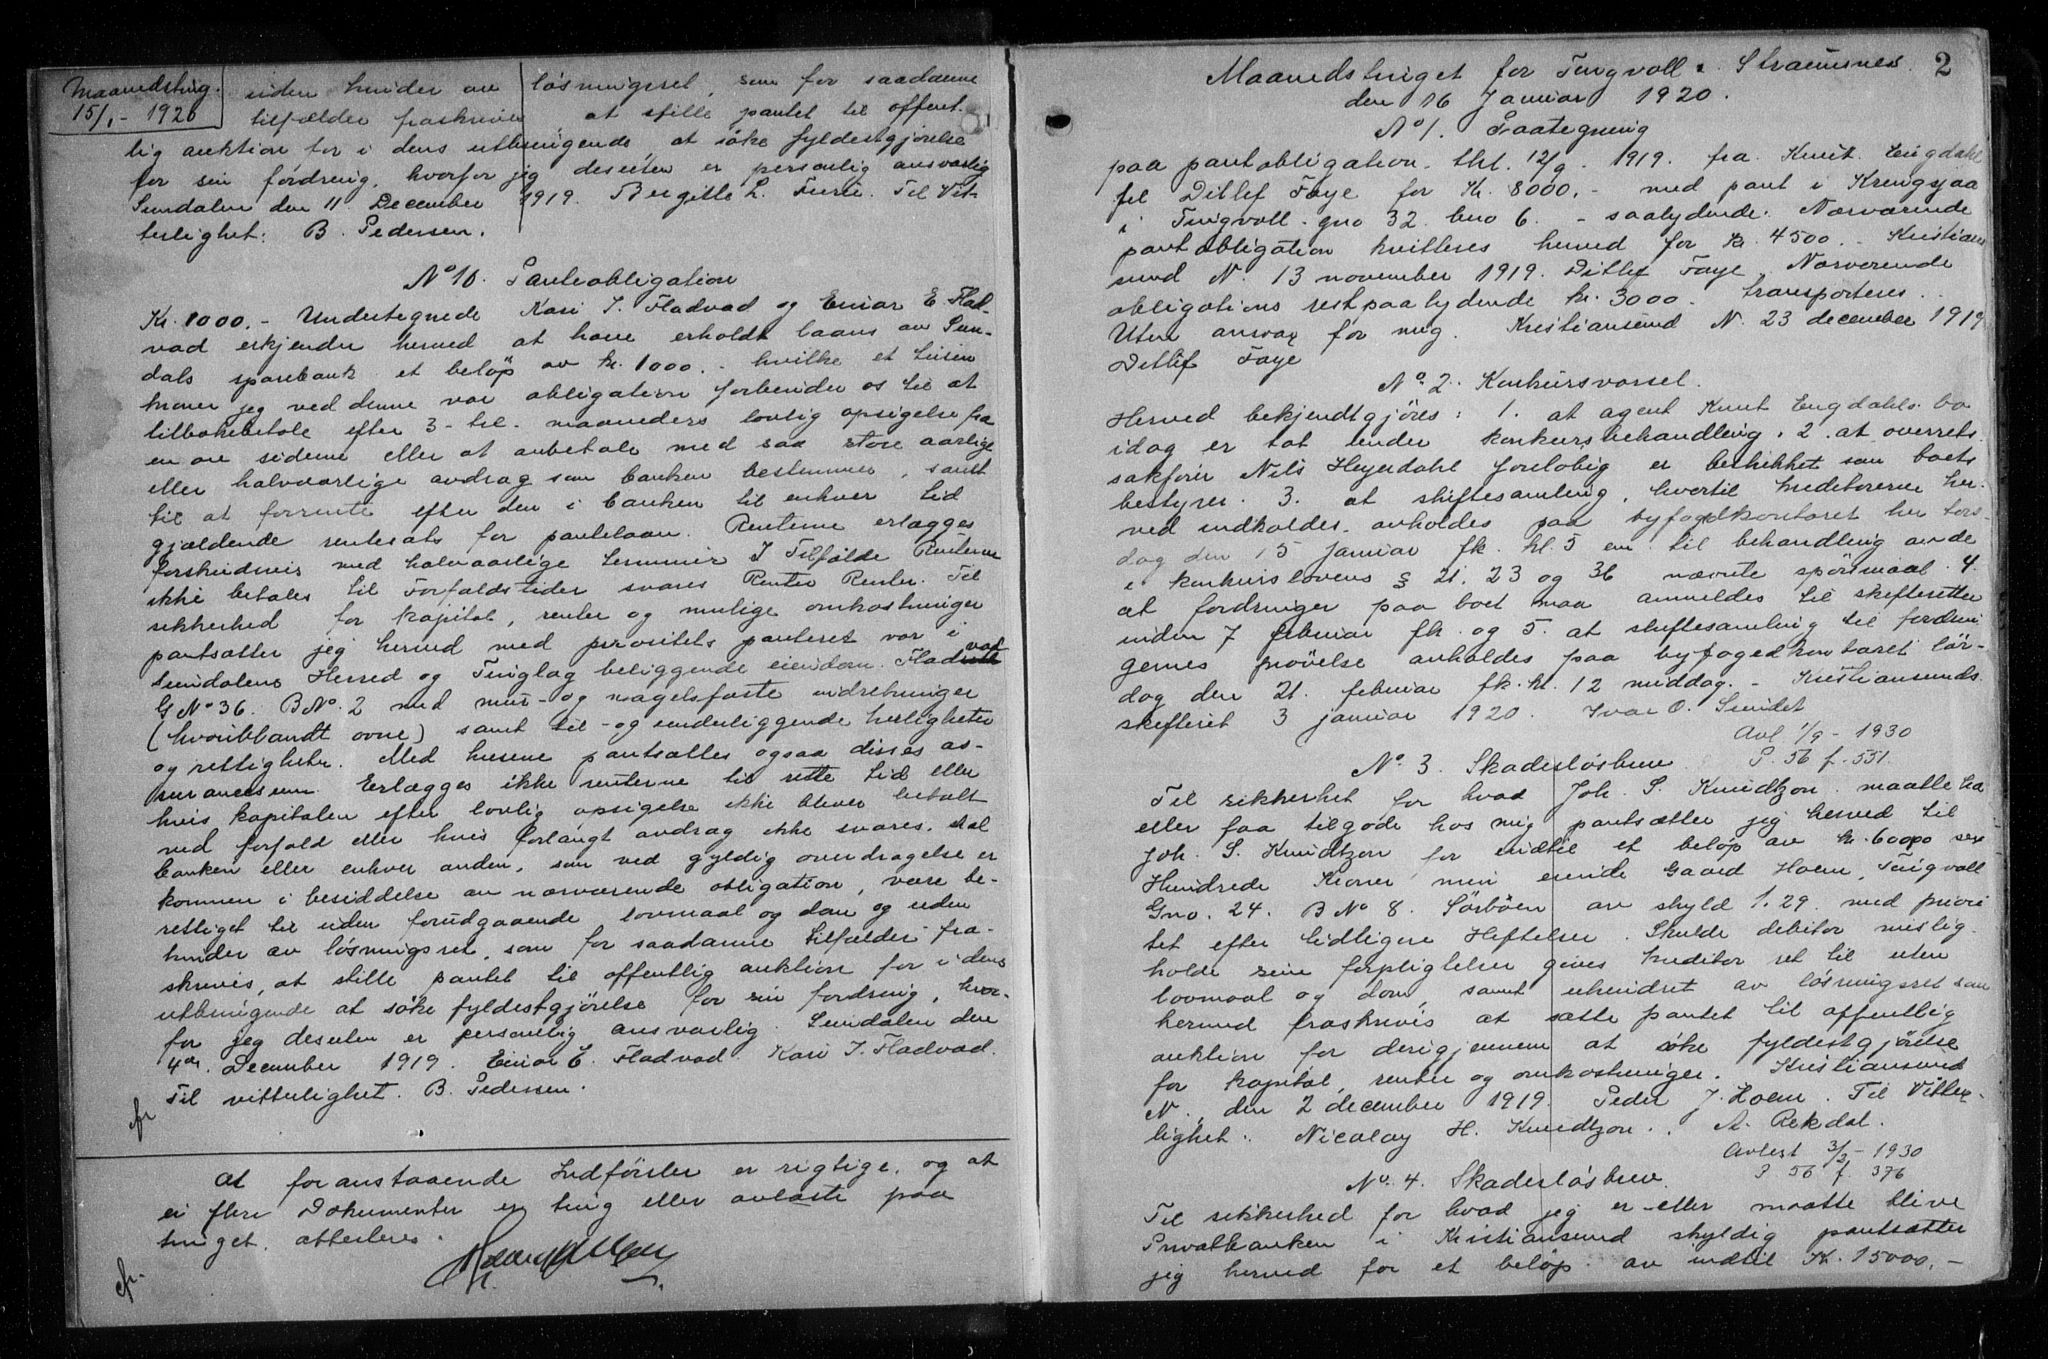 Maanedsting.
15/1 - 1920
uden hinder av løsningsret, som for saadanne
tilfælder fraskrives at stille pantet til offent-
lig auktion for i dens utbringende at søke fyldestgjørelse
for sin fordring, hvorfor jeg desuten er personlig ansvarlig
Sundalen den 11 December 1919. Birgitte L. Furu. Til Vit-
terlighet: B. Pedersen.
No 10. Panteobligation
Kr. 1000.- Undertegnede Kari J. Fladvad og Einar E Flad-
vad erkjender herved at have erholdt laans av Sun-
dals sparebank et beløp av kr. 1000.- hvilke et tusen
kroner jeg ved denne vor obligation forbinder os til at
tilbakebetale efter 3- til- maaneders lovlig opsigelse fra
en av siderne eller at avbetale med saa store aarlige
eller halvaarlige avdrag som banken bestemmer, samt
til at forrente efter den i banken til enhver tid
gjældende rentesats for pantelaan. Renterne erlægges
forskudsvis med halvaarlige terminer I Tilfælde Renterne
ikke betales til Forfaldstider svares Renters Renter. Til
sikkerhed for kapital, renter og mulige omkostninger
pantsætter jeg herved med prioritets panteret vor i
Sundalens Herred og Tinglag beliggende eiendom Fladvad
G No 36. B No. 2 med mur- og nagelfaste indretninger
(hvoriblandt ovne) samt til- og underliggende herligheter
og rettigheter. Med husene pantsættes ogsaa disses as-
surancesum. Erlægges ikke renterne til rette tid eller
hvis kapitalen efter lovlig opsigelse ikke bliver betalt
ved forfald eller hvis forlangt avdrag ikke svares, skal
banken eller enhver anden, som ved gyldig overdragelse er
kommen i besiddelse av nærværende obligation, være be-
rettiget til uden forudgaaende lovmaal og dom og uden
hinder av løsningsret, som for saadanne tilfælder fra-
skrives, at stille pantet til offentlig auktion for i dens
utbringende at søke fyldestgjørelse for sin fordring, hvor-
for jeg desuten er personlig ansvarlig. Sundalen den
4de December 1919. Einar E. Fladvad. Kari J. Fladvad.
Til vitterlighet. B. Pedersen.
At foranstaaende Indførsler er rigtige, og at
ei flere Dokumenter er ting eller avlæste paa
tinget, attesteres.
2
Maanedstinget for Tingvoll & Straumsnes
den 16 Januar 1920.
No 1. Paategning
paa pantobligation tlt. 12/9. 1919. fra Knut Engdahl
til Ditlef Faye for Kr. 8000.- med pant i Krengsjaa
i Tingvoll gno 32 bno 6. - saalydende: Nærværende
pantobligation kvitteres herved for kr. 4500.- Kristian
sund N. 13 november 1919. Ditlef Faye. Nærværende
obligations restpaalydende kr. 3000. transporteres.
Uten ansvar for mig. Kristiansund N. 23 december 1919
Ditlef Faye
No. 2. Konkursvarsel.
Herved bekjendtgjøres: 1. at agent Knut Engdahls bo
idag er tat under konkursbehandling. 2. at overrets
sakfører Nils Heyerdahl foreløbig er beskikket som boets
bestyrer. 3. at skiftesamling, hvortil kreditorerne her-
ved indkaldes, avholdes paa byfogdkontoret her tors-
dag den 15 januar fk. kl. 5 em. til behandling av de
i konkurslovens § 21. 23 og 36 nævnte spørsmaal. 4.
at fordringer paa boet maa anmeldes til skifteretten
inden 7 februar fk. og 5. at skiftesamling til fordrin
gernes prøvelse avholdes paa byfogedkontoret lør-
dag den 21. februar fk. kl. 12 middag. - Kristiansunds
skifteret 3 januar 1920. Ivar O. Sundet
Avl 1/9 - 1930
P. 56 f. 551.
No. 3. Skadesløsbrev
Til sikkerhet for hvad Joh. S. Knudtzon maatte ha
eller faa tilgode hos mig pantsætter jeg herved til
Joh. S. Knudtzon for indtil et beløp av kr. 600,00 sex
Hundrede Kroner min eiende Gaard Hoem, Tingvoll
Gno. 24. B No 8. Sørbøen av skyld 1.29 med priori
tet efter tidligere Heftelser. Skulde debitor mislig-
holde sine forpligtelser gives kreditor ret til uten
lovmaal og dom, samt uhindret av løsningsret som
herved fraskrives at sætte pantet til offentlig
auktion for derigjennem at søke fyldestgjørelse
for kapital, renter og omkostninger. Kristiansund
N., den 2 december 1919. Peder J. Hoem. Til Vitter-
lighet: Nicolay H. Knudtzon. A. Rekdal.
Avlest 3/3 - 1930
P. 56 f. 376
No. 4. Skadesløsbrev.
Til sikkerhed for hvad jeg er eller maatte blive
Privatbanken i Kristiansund skyldig pantsætter
jeg herved for et beløp av indtil Kr. 15000,-